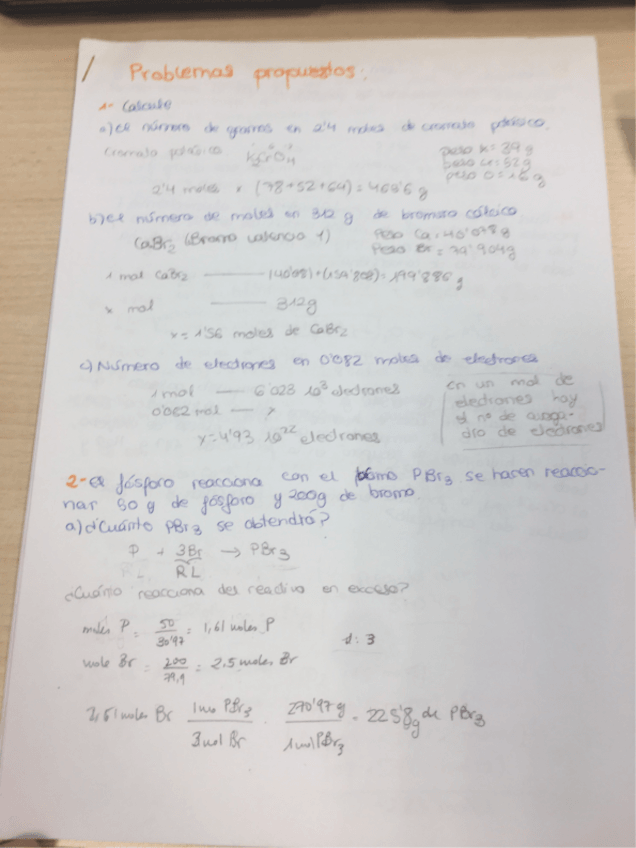 Problemas propuestos:
1- Calcule
a) el número de gramos en 2'4 moles de cromato potásico.
Cromato potásico K2CrO4
peso K = 39 g
peso Cr = 52g
peso O = 16 g
2'4 moles × (78+52+64) = 465'6 g
b) el número de moles en 312 g de bromuro cálcico
CaBr2 (Bromo valencia 1)
Peso Ca = 40'078 g
Peso Br = 79'904g
1 mol CaBr2 —— (40'08)+(159'808) = 199'886 g
x mol —— 312g
x = 1'56 moles de CaBr2
c) Número de electrones en 0'082 moles de electrones
1 mol — 6'023 10 electrones
0'082 mol — x
x = 4'93 10^22 electrones
en un mol de
electrones hay
el nº de avoga-
dro de electrones
2- el fósforo reacciona con el PBr3 se hacen reaccio-
nar 50 g de fósforo y 200g de bromo.
a) ¿Cuánto PBr3 se obtendrá?
P + 3Br → PBr3
RL
¿Cuánto reacciona del reactivo en exceso?
moles P = 50/30'97 = 1,61 moles P
mole Br = 200/79,9 = 2,5 moles Br
: 3
moles Br 1 mol PBr3/3 mol Br · 270'97 g/1 mol PBr3 = 225'8 g de PBr3